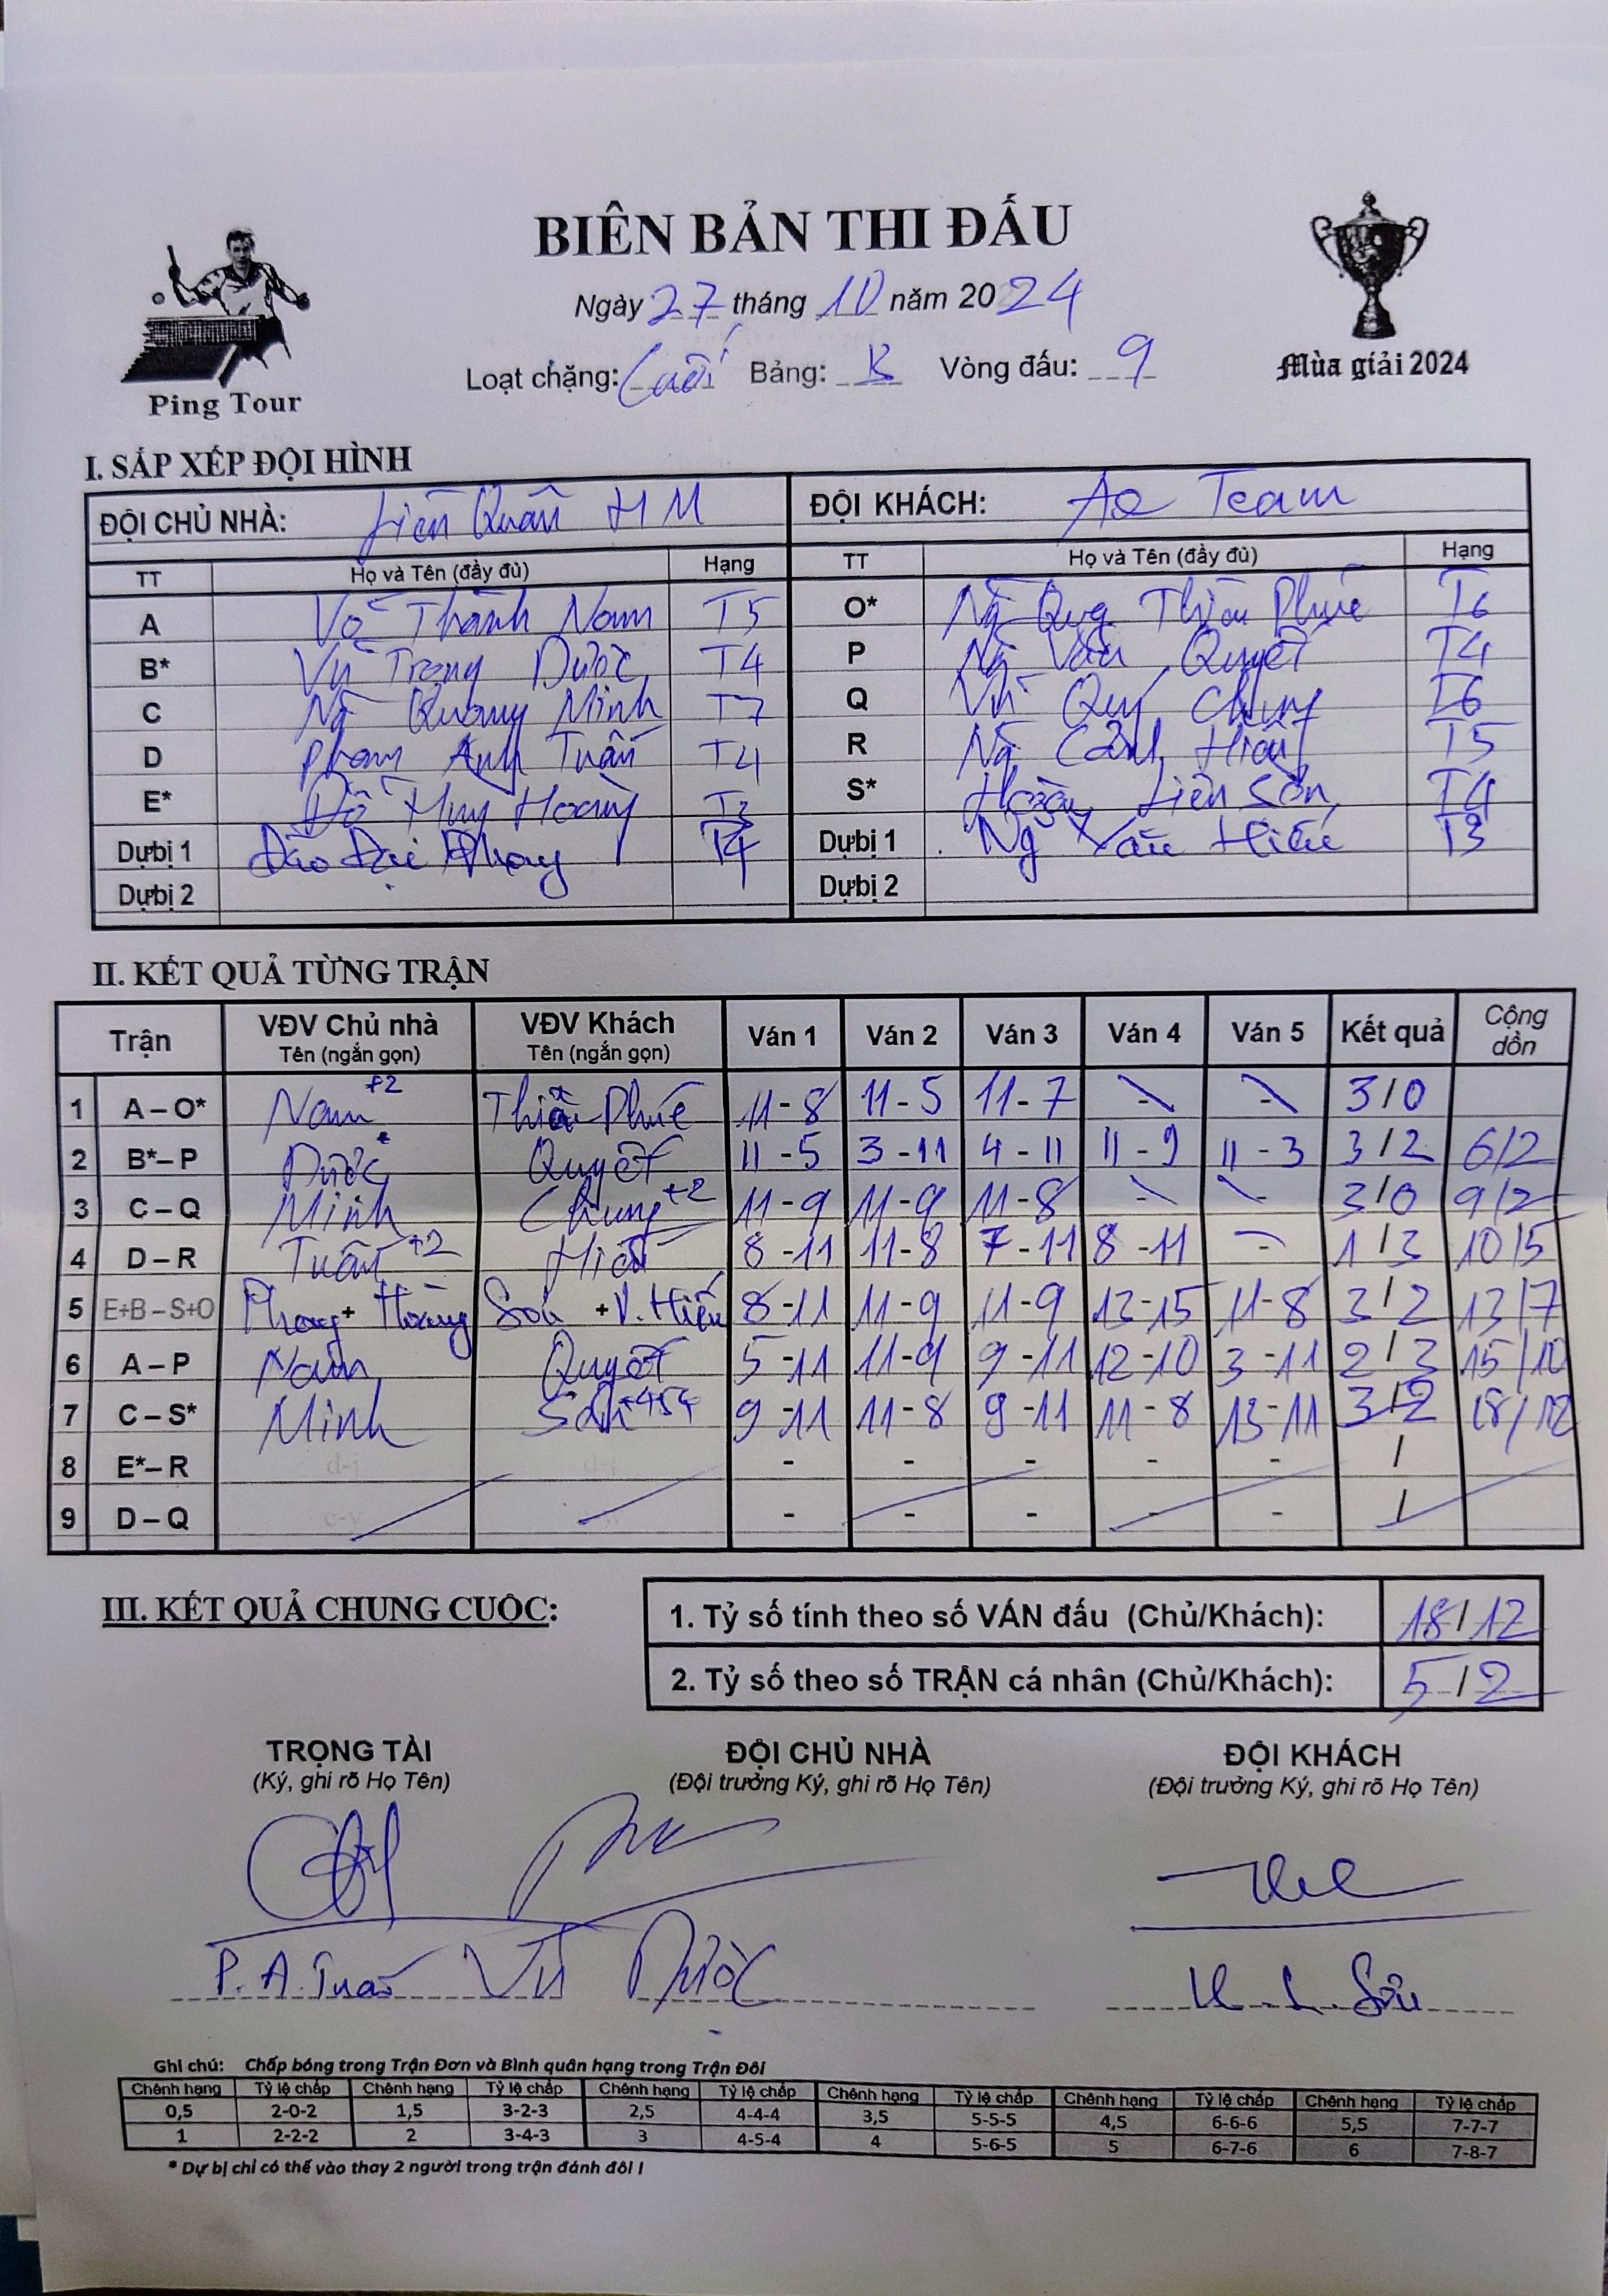 BIÊN BẢN THI ĐẤU
Ngày 27 tháng 10 năm 2024
Loạt chặng: Cuối Bảng: B Vòng đấu: 9
Ping Tour
Mùa giải 2024
I. SẮP XẾP ĐỘI HÌNH
ĐỘI CHỦ NHÀ: Liên Quân HM ĐỘI KHÁCH: Team
TT Họ và Tên (đầy đủ) Hạng TT Họ và Tên (đầy đủ) Hạng
A Võ Thành Nam T5 O* Ng Quy Thiên Phúc T6
B* Vũ Trọng Dược T4 P Ng Văn Quyết T4
C Ng Quang Minh T7 Q Vũ Quý Chung T6
D Phạm Anh Tuấn T4 R Ng Cảnh Hiển T5
E* Đỗ Huy Hoàng T3 S* Hoàng Liên Sơn T4
Dự bị 1 Đào Đại Phong T4 Dự bị 1 Ng Văn Hiếu T3
Dự bị 2 Dự bị 2
II. KẾT QUẢ TỪNG TRẬN
Trận VĐV Chủ nhà Tên (ngắn gọn) VĐV Khách Tên (ngắn gọn) Ván 1 Ván 2 Ván 3 Ván 4 Ván 5 Kết quả Cộng dồn
1 A – O* Nam +2 Thiên Phúc 11-8 11-5 11-7 - - 3/0
2 B* – P Dược Quyết 11-5 3-11 4-11 11-9 11-3 3/2 6/2
3 C – Q Minh Chung +2 11-9 11-9 11-8 - - 3/0 9/2
4 D – R Tuấn +2 Hiển 8-11 11-8 7-11 8-11 - 1/3 10/5
5 E+B – S+O Phong + Hoàng Sơn + V. Hiếu 8-11 11-9 11-9 13-15 11-8 3/2 13/7
6 A – P Nam Quyết 5-11 11-9 9-11 12-10 3-11 2/3 15/10
7 C – S* Minh Sơn +454 9-11 11-8 9-11 11-8 13-11 3/2 18/12
8 E* – R - - - - - /
9 D – Q - - - - - /
III. KẾT QUẢ CHUNG CUỘC:
1. Tỷ số tính theo số VÁN đấu (Chủ/Khách): 18/12
2. Tỷ số theo số TRẬN cá nhân (Chủ/Khách): 5/2
TRỌNG TÀI ĐỘI CHỦ NHÀ ĐỘI KHÁCH
(Ký, ghi rõ Họ Tên) (Đội trưởng Ký, ghi rõ Họ Tên) (Đội trưởng Ký, ghi rõ Họ Tên)
P. A. Tuấn Vũ Dược H. L. Sơn
Ghi chú: Chấp bóng trong Trận Đơn và Bình quân hạng trong Trận Đôi
Chênh hạng Tỷ lệ chấp Chênh hạng Tỷ lệ chấp Chênh hạng Tỷ lệ chấp Chênh hạng Tỷ lệ chấp Chênh hạng Tỷ lệ chấp Chênh hạng Tỷ lệ chấp
0,5 2-0-2 1,5 3-2-3 2,5 4-4-4 3,5 5-5-5 4,5 6-6-6 5,5 7-7-7
1 2-2-2 2 3-4-3 3 4-5-4 4 5-6-5 5 6-7-6 6 7-8-7
* Dự bị chỉ có thể vào thay 2 người trong trận đánh đôi !